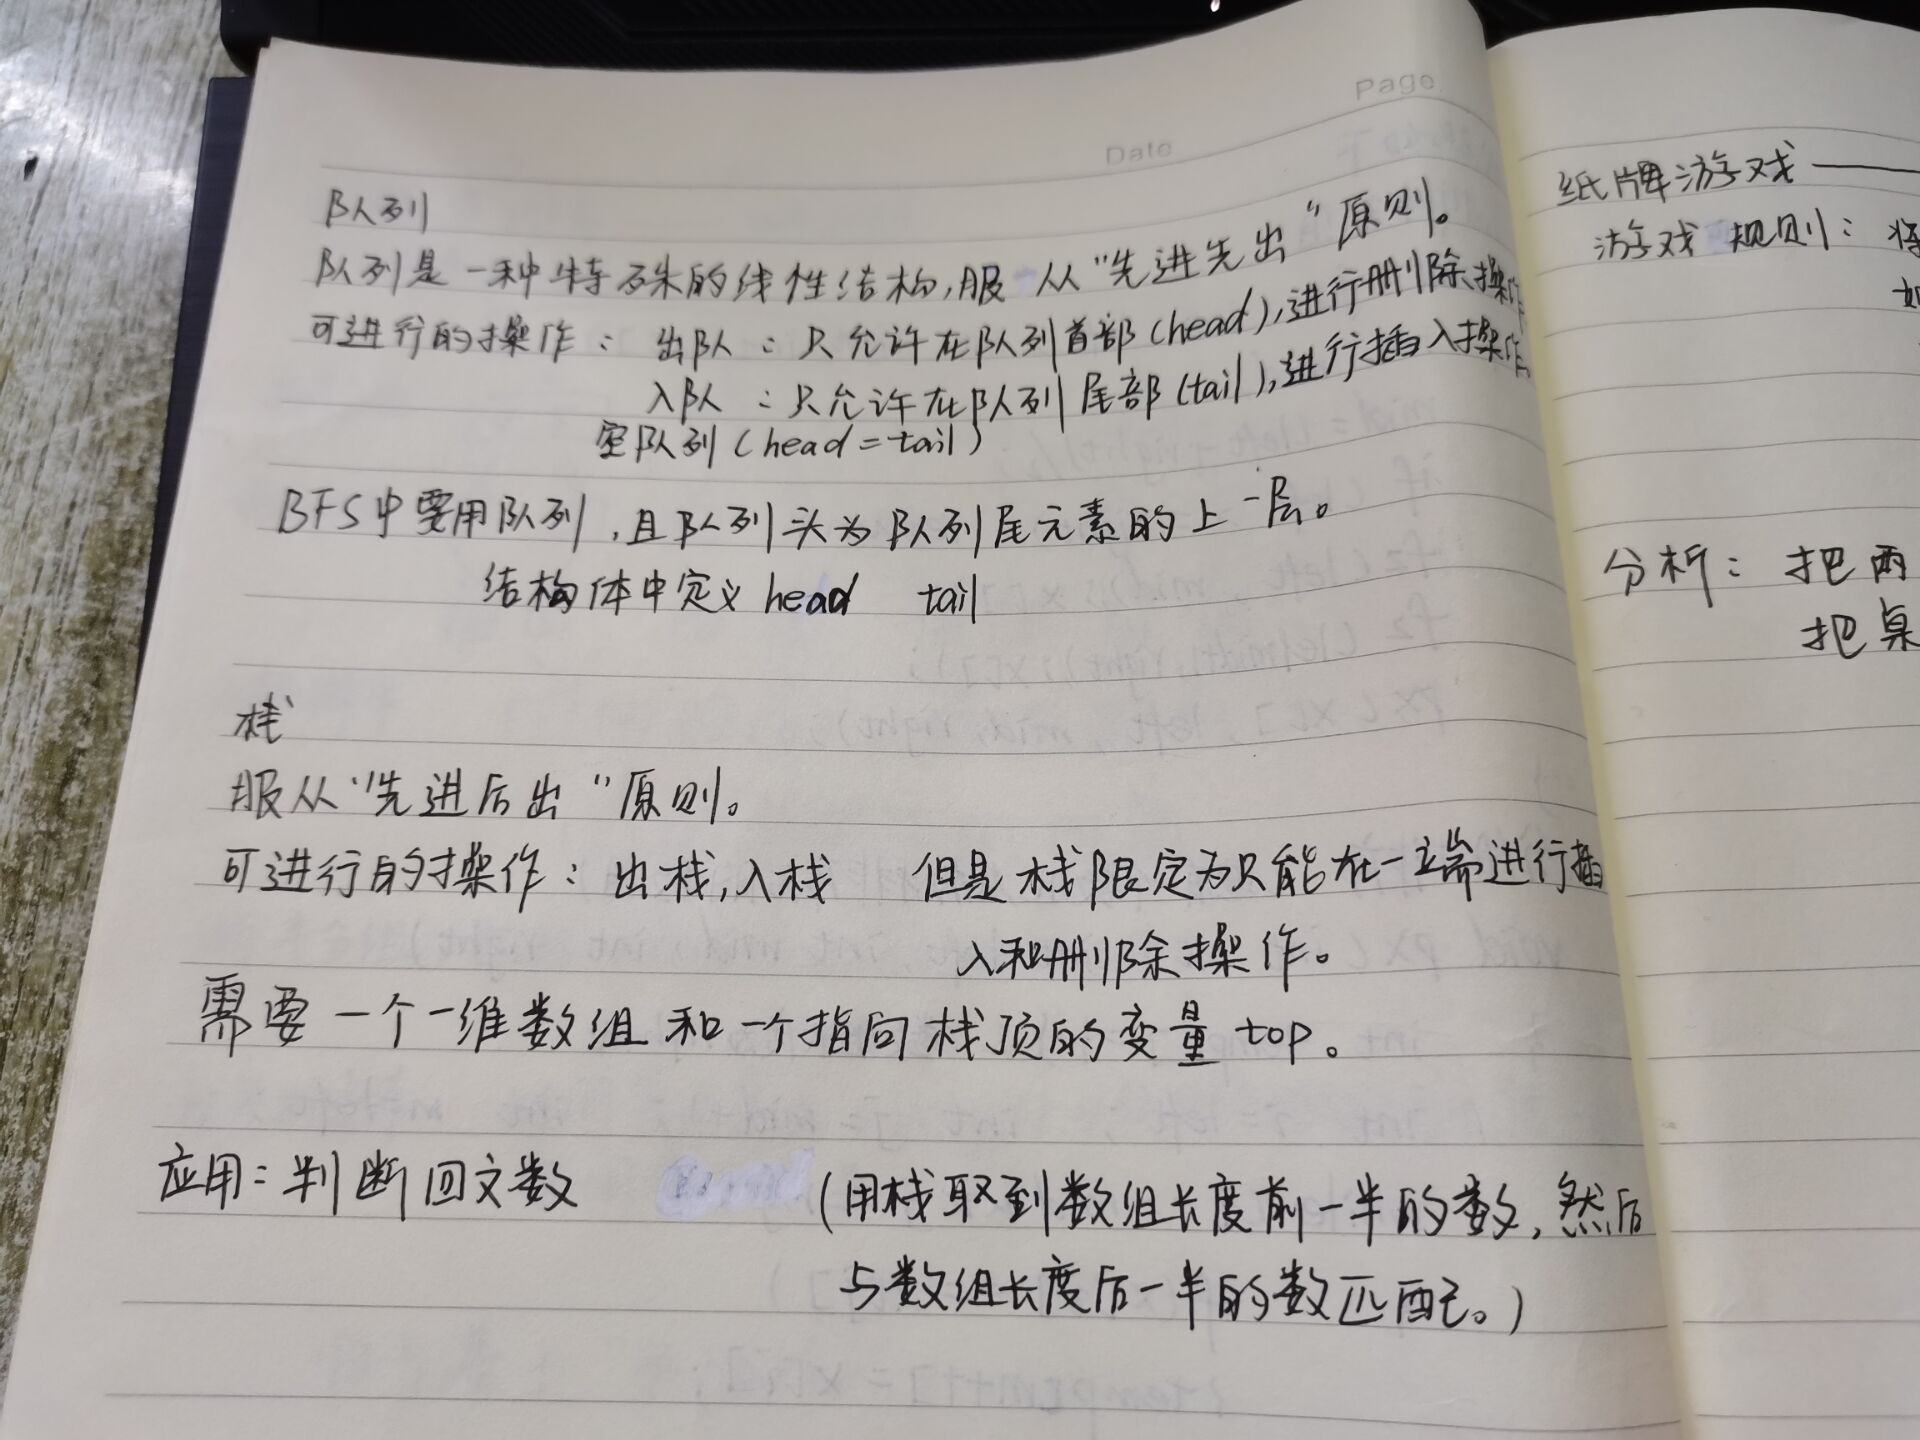 Page
Date
队列
队列是一种特殊的线性结构,服从"先进先出"原则。
可进行的操作：出队：只允许在队列首部(head),进行删除操作
入队：只允许在队列尾部(tail),进行插入操作。
空队列(head=tail)
BFS中要用队列,且队列头为队列尾元素的上一层。
结构体中定义 head tail
栈
服从"先进后出"原则。
可进行的操作：出栈,入栈 但是栈限定为只能在一端进行插
入和删除操作。
需要一个一维数组和一个指向栈顶的变量 top。
应用：判断回文数 (用栈取到数组长度前一半的数,然后
与数组长度后一半的数匹配。)
纸牌游戏——
游戏规则：将
如
分析：把两
把桌